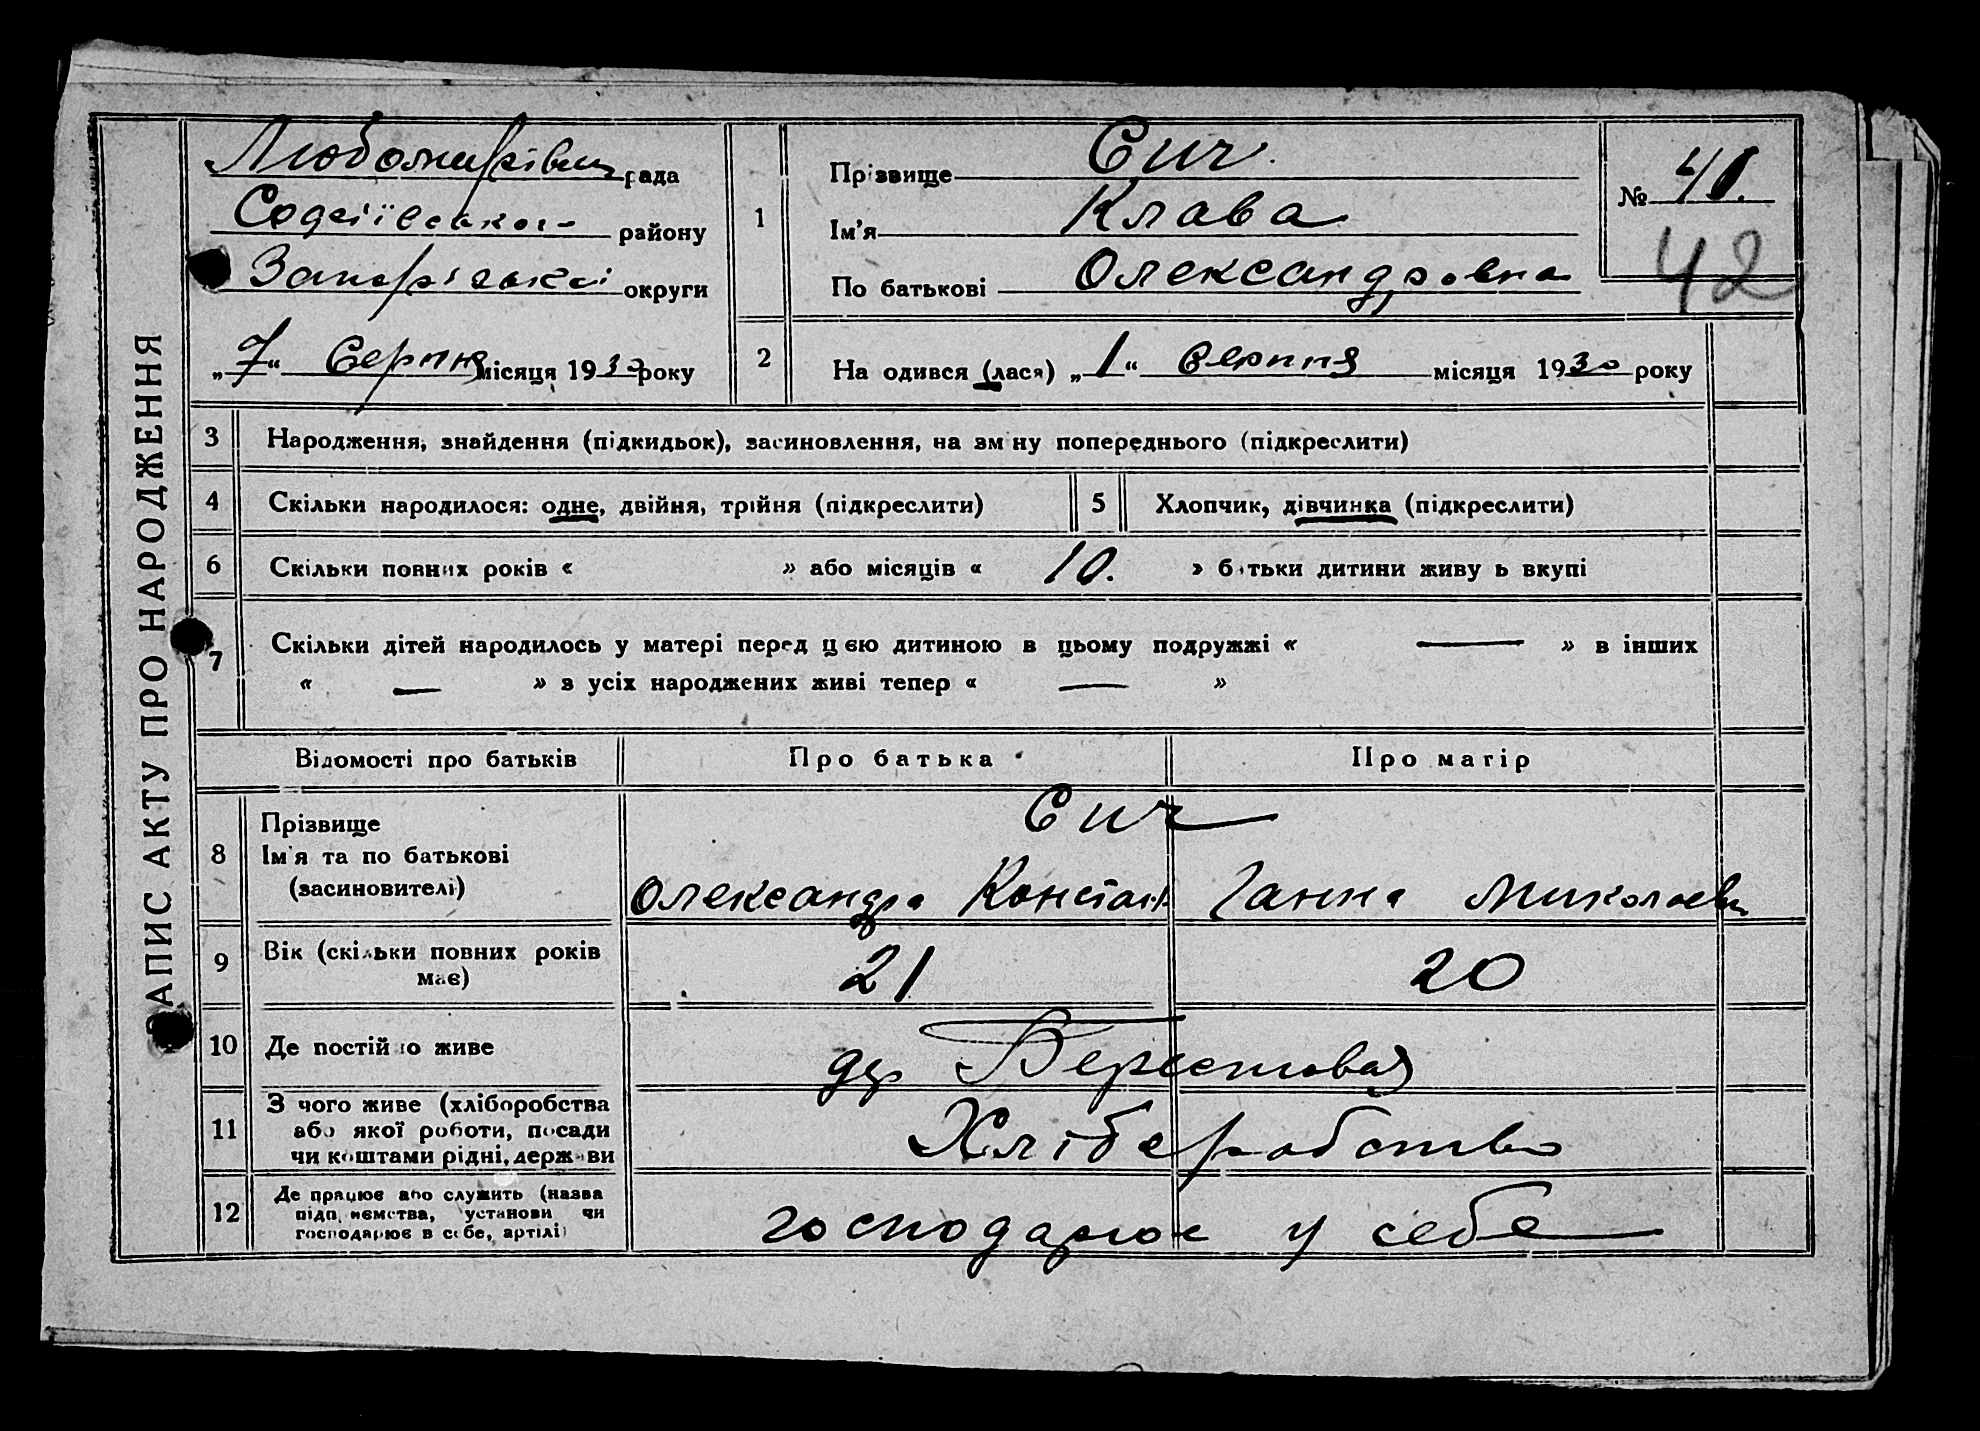 ЗАПИС АКТУ ПРО НАРОДЖЕННЯ
Любомирівськ рада
Софіївського району
Запорізької округи
„7“ Серпня місяця 1930 року
1 Прізвище Сич
Ім'я Клава
По батькові Олександровна
№ 41.
42
2 Народився (лася) „1“ Серпня місяця 1930 року
3 Народження, знайдення (підкидьок), засиновлення, на зміну попереднього (підкреслити)
4 Скільки народилося: одне, двійня, трійня (підкреслити) 5 Хлопчик, дівчинка (підкреслити)
6 Скільки повних років « » або місяців « 10. » батьки дитини живуть вкупі
7 Скільки дітей народилось у матері перед цією дитиною в цьому подружжі « — » в інших
« — » з усіх народжених живі тепер « — »
Відомості про батьків Про батька Про матір
8 Прізвище Сич
Ім'я та по батькові
(засиновителі) Олександра Констан Ганна Миколаевн
9 Вік (скільки повних років
має) 21 20
10 Де постійно живе дер Берестовая
11 З чого живе (хліборобства
або якої роботи, посади
чи коштами рідні, держави Хліборобство
12 Де працює або служить (назва
підприємства, установи чи
господарює в себе, артілі) господарює у себе